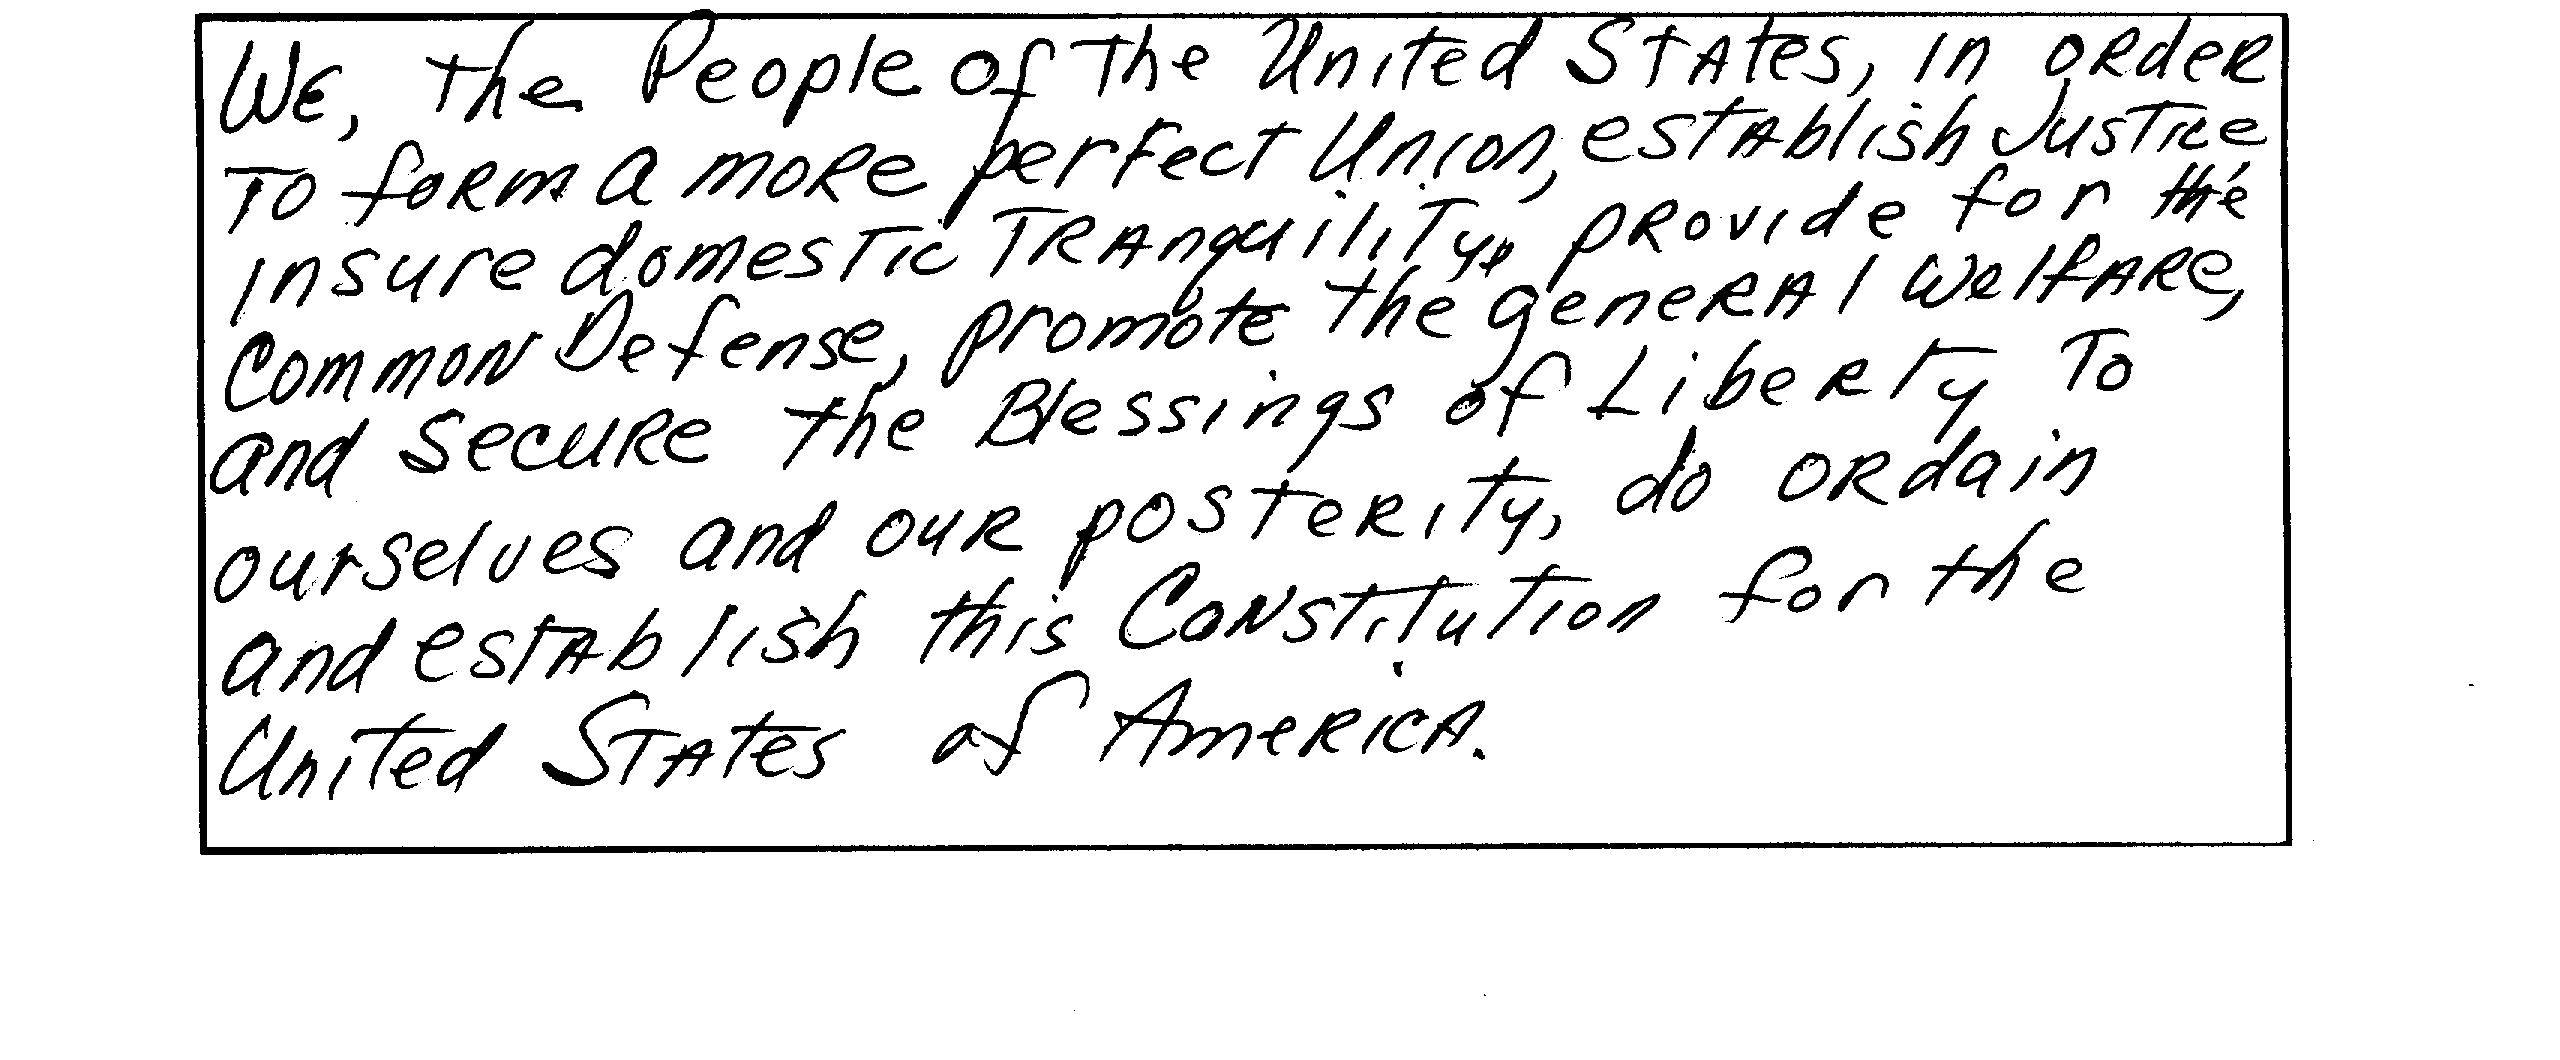 We, the People of the United States, in order
to form a more perfect Union, establish Justice
insure domestic Tranquility, provide for the
Common Defense, promote the general Welfare,
and secure the Blessings of Liberty to
ourselves and our posterity, do ordain
and establish this Constitution for the
United States of America.